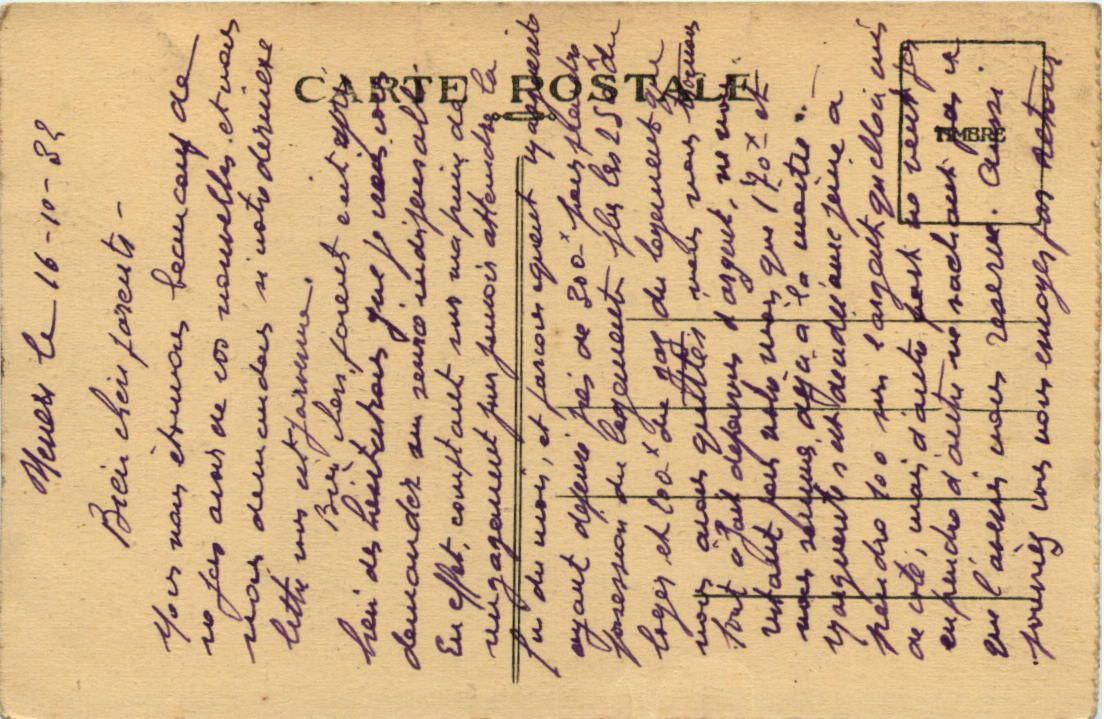 CARTE POSTALE
TIMBRE
le 16-10-32
Bien chers parents -
Nous nous étonnons beaucoup de
ne pas avoir de vos nouvelles, et nous
nous demandons si notre dernière
lettre vous est parvenue.
Bien chers parents c'est après
bien des hésitations que je viens vous
demander un service indispensable.
En effet, comptant sur ma paie de
engagement puis attendre la
fin du mois, et parce que
ayant dépensé près de 300 x pour prendre
possession du logement plus les 25 du
loyer et 100 x du gaz du logement que
nous avons quittés mais nous
tout à fait dépourvus d'argent, ne nous
restant par mois que 170 x et
nous sommes déjà à la moitié. -
prendre 100 sur l'argent qu'elle a mis
de côté, mais d'autre part ne veut pas
en prendre d'autre ne sachant pas si
nous l'avenir nous réserve. Aussi.
pourriez vous nous envoyer par retour